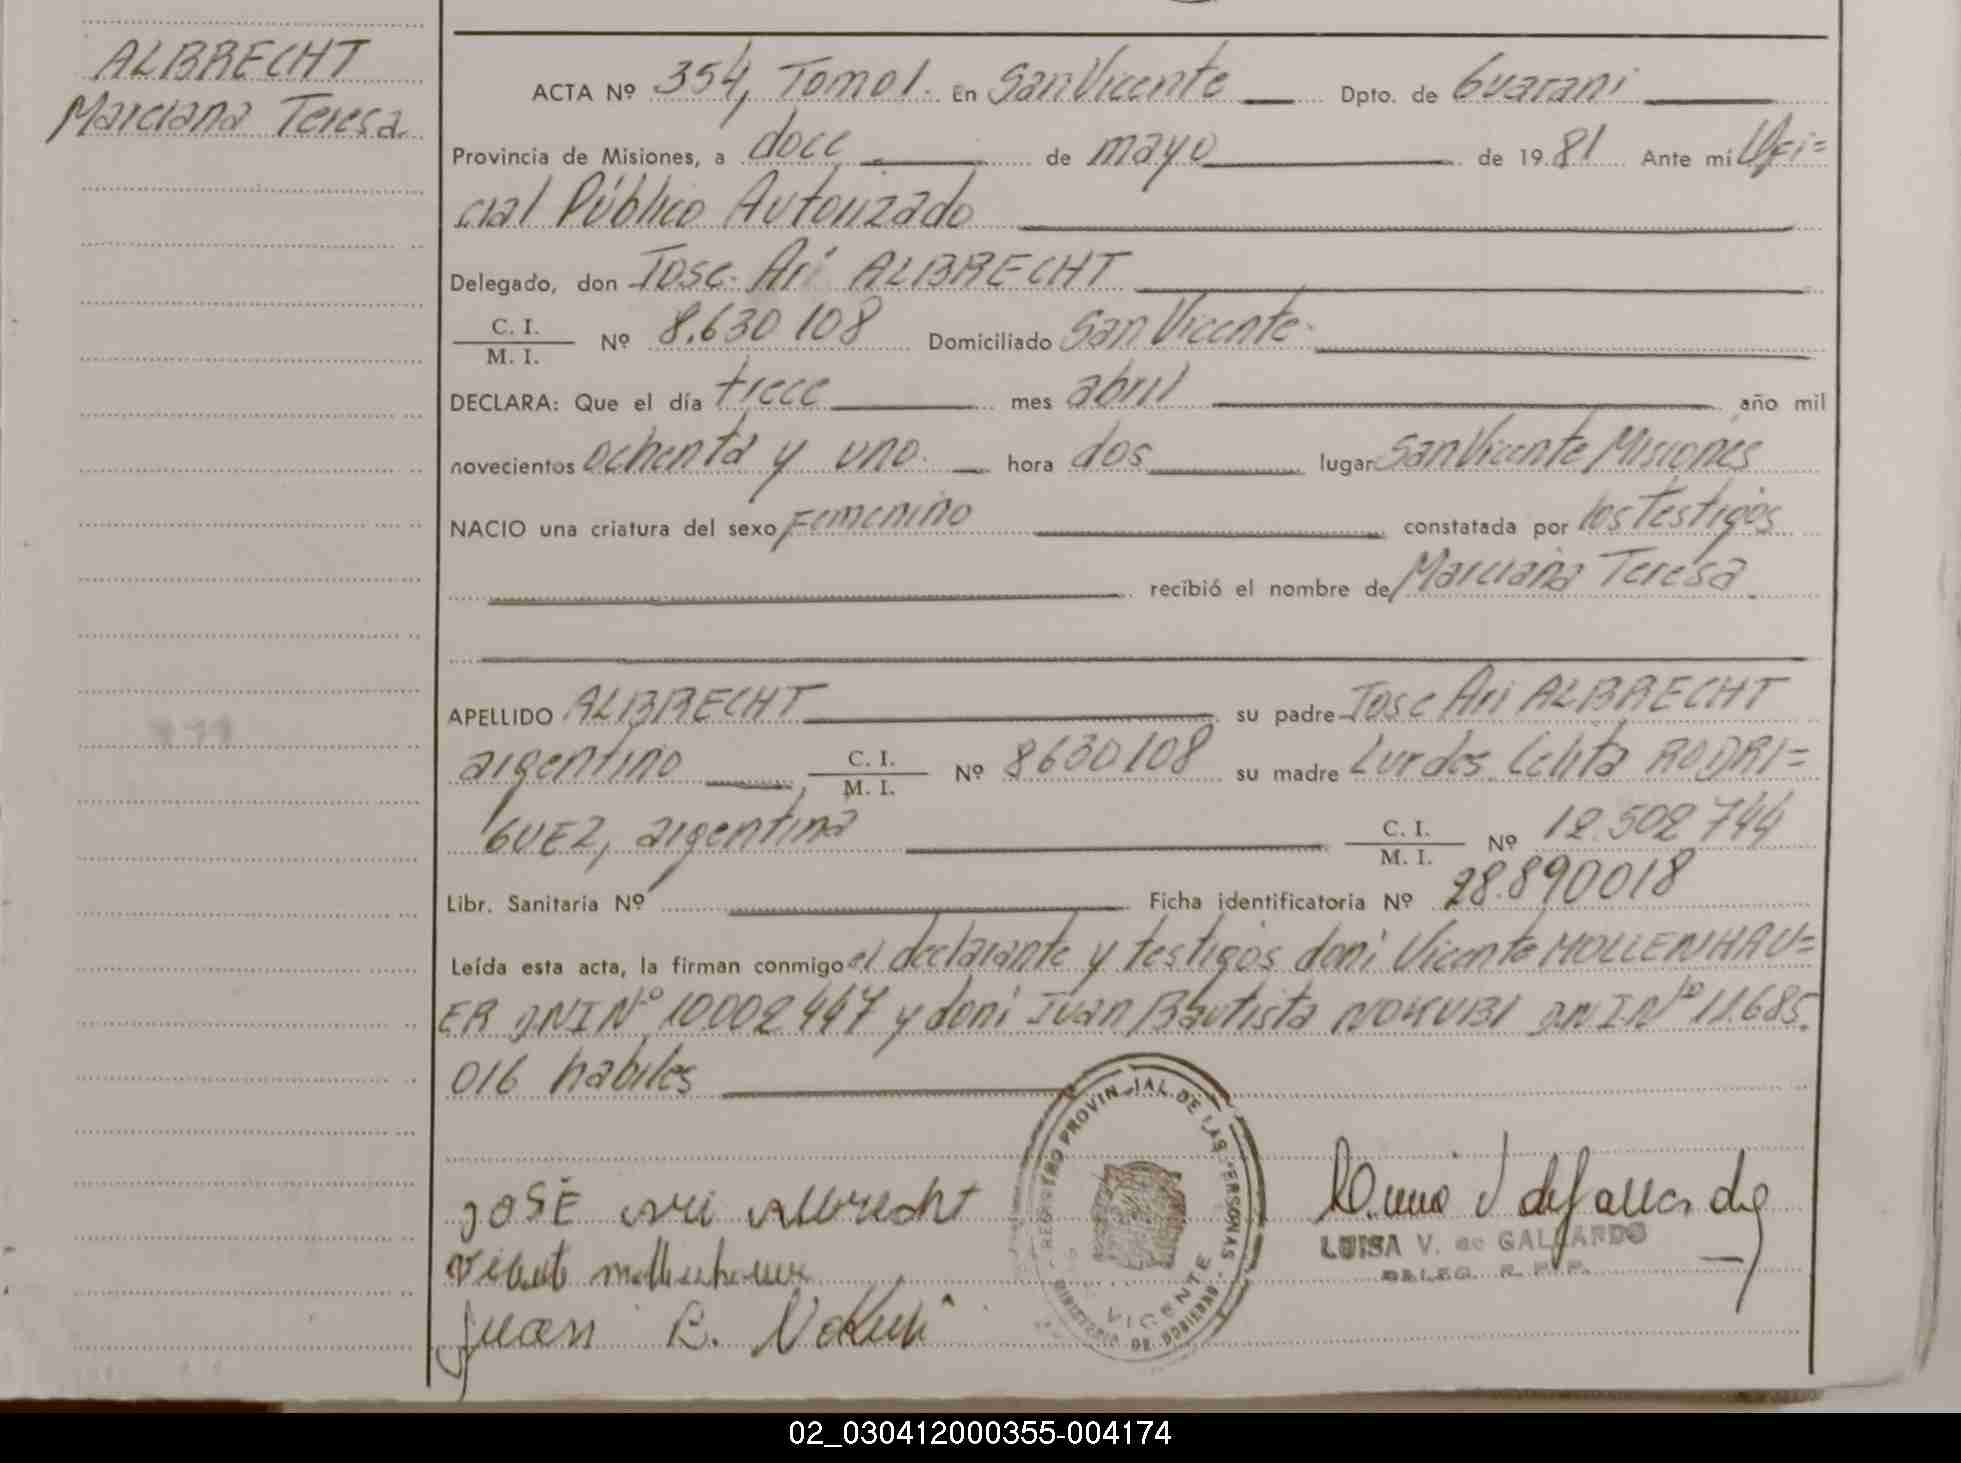 ALBRECHT
Marciana Teresa
ACTA Nº 354, Tomo 1. En San Vicente Dpto. de Guarani
Provincia de Misiones, a doce de mayo de 1981 Ante mí Ofi=
cial Público Autorizado
Delegado, don Jose Ari ALBRECHT
C. I.
M. I. Nº 8.630 108 Domiciliado San Vicente
DECLARA: Que el día trece mes abril año mil
novecientos ochenta y uno hora dos lugar San Vicente Misiones
NACIO una criatura del sexo Femenino constatada por los Testigos
recibió el nombre de Marciana Teresa
APELLIDO ALBRECHT su padre Jose Ari ALBRECHT
argentino C. I. M. I. Nº 8630108 su madre Lurdes Celita RODRI=
GUEZ, argentina C. I. M. I. Nº 12.502 744
Libr. Sanitaria Nº Ficha identificatoria Nº 28.890018
Leída esta acta, la firman conmigo el declarante y testigos doni Vicente MOLLENHAU=
ER DNI Nº 10002447 y doni Juan Bautista NOKUBI DNI Nº 11.685.
016 habiles
REGISTRO PROVINCIAL DE LAS PERSONAS
VICENTE
MINISTERIO DE GOBIERNO
JOSÉ Ari Albrecht
Vicente mollenhauer
Juan B. Nokubi
LUISA V. de GALLARDO
DELEG. R. P. P.
02_030412000355-004174